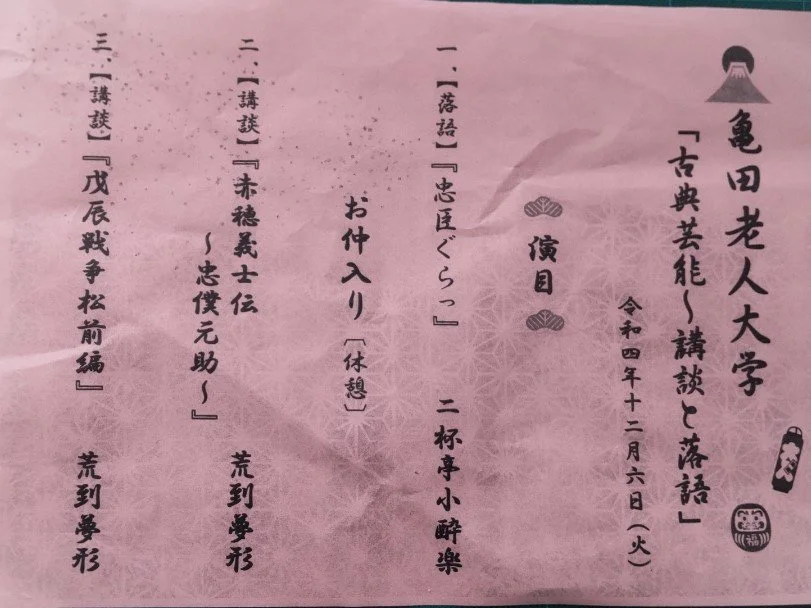 亀田老人大学
「古典芸能～講談と落語」
令和四年十二月六日（火）
演目
一、【落語】『忠臣ぐらっ』 二杯亭小酔楽
お仲入り〔休憩〕
二、【講談】『赤穂義士伝
～忠僕元助～』 荒到夢形
三、【講談】『戊辰戦争松前編』 荒到夢形
福